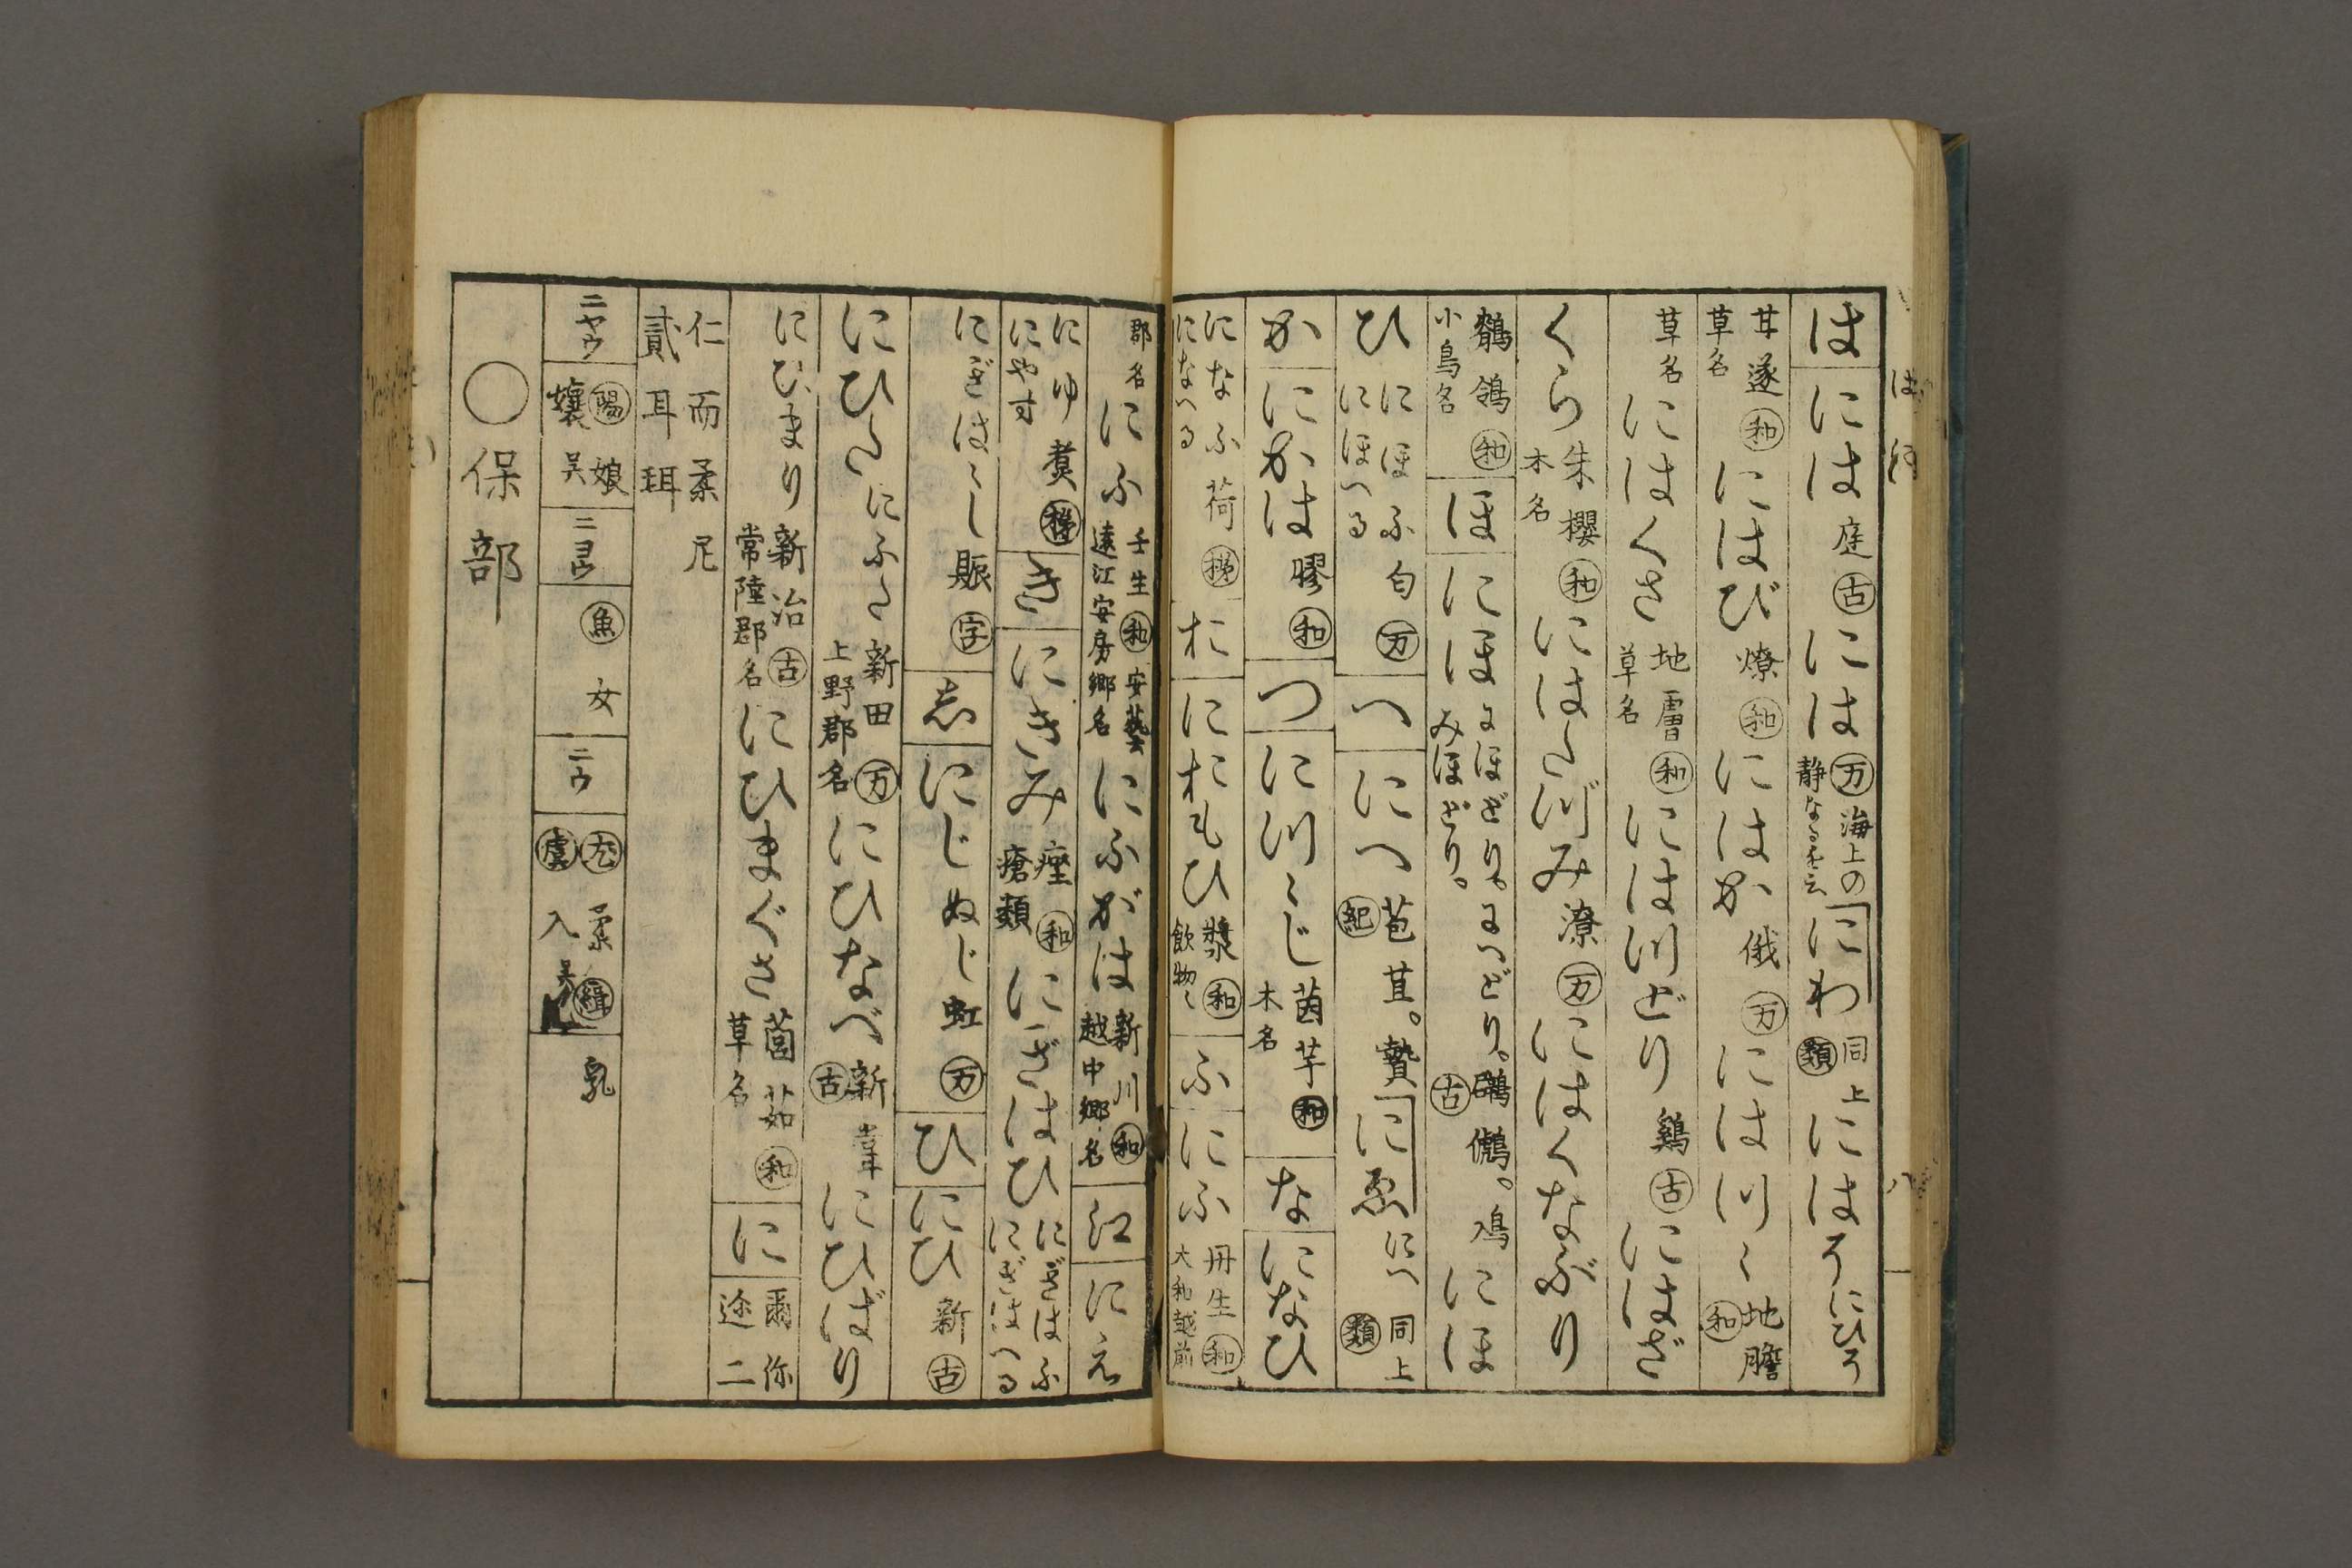 は には 庭 古 には 万 海上の静なるを云 にわ 同上 類 にはそ にひそ
草名 甘遂 和 にはび 燎 和 にはか 俄 万 には川ミ 地膽 和
草名 にはくさ 地膚 和 草名 には川どり 鷄 古 にはざ
くら 朱櫻 和 木名 にはたづみ 潦 万 にはくなぶり
鶺鴒 和 小鳥名 ほ にほ にほどり。にへどり。みほどり。鸊鷉。鳰 古 にほ
ひ にほふ にほへる 匂 万 へ にへ 苞苴。贄 紀 にゑ にへ 同上 類
か にかは 膠 和 つ に川ゝじ 茵芋 和 木名 な になひ
になふ になへる 荷 お におもひ 漿 和 飲物 ふ にふ 丹生 和 大和越前
郡名 にふ 壬生 和 安藝遠江安房郷名 にふがは 新川 和 越中郷名 江 にえ
にゆ にやす 煮 き にきみ 痤 和 瘡類 にぎはひ にぎはふ にぎはへる
にぎはゝし 賑 字 志 にじ ぬじ 虹 万 ひ にひ 新 古
にひた にふた 新田 万 上野郡名 にひなべ 新 古 にひばり
にひまり 新治 古 常陸郡名 にひまぐさ 茵茹 和 草名 に 爾 你 迩 二
仁 而 柔 尼 貳 耳 珥
ニヤウ 陽 娘 孃 吴 ニヨウ 魚 女 ニウ 尤 柔 虞 入 緝 乳
○保部